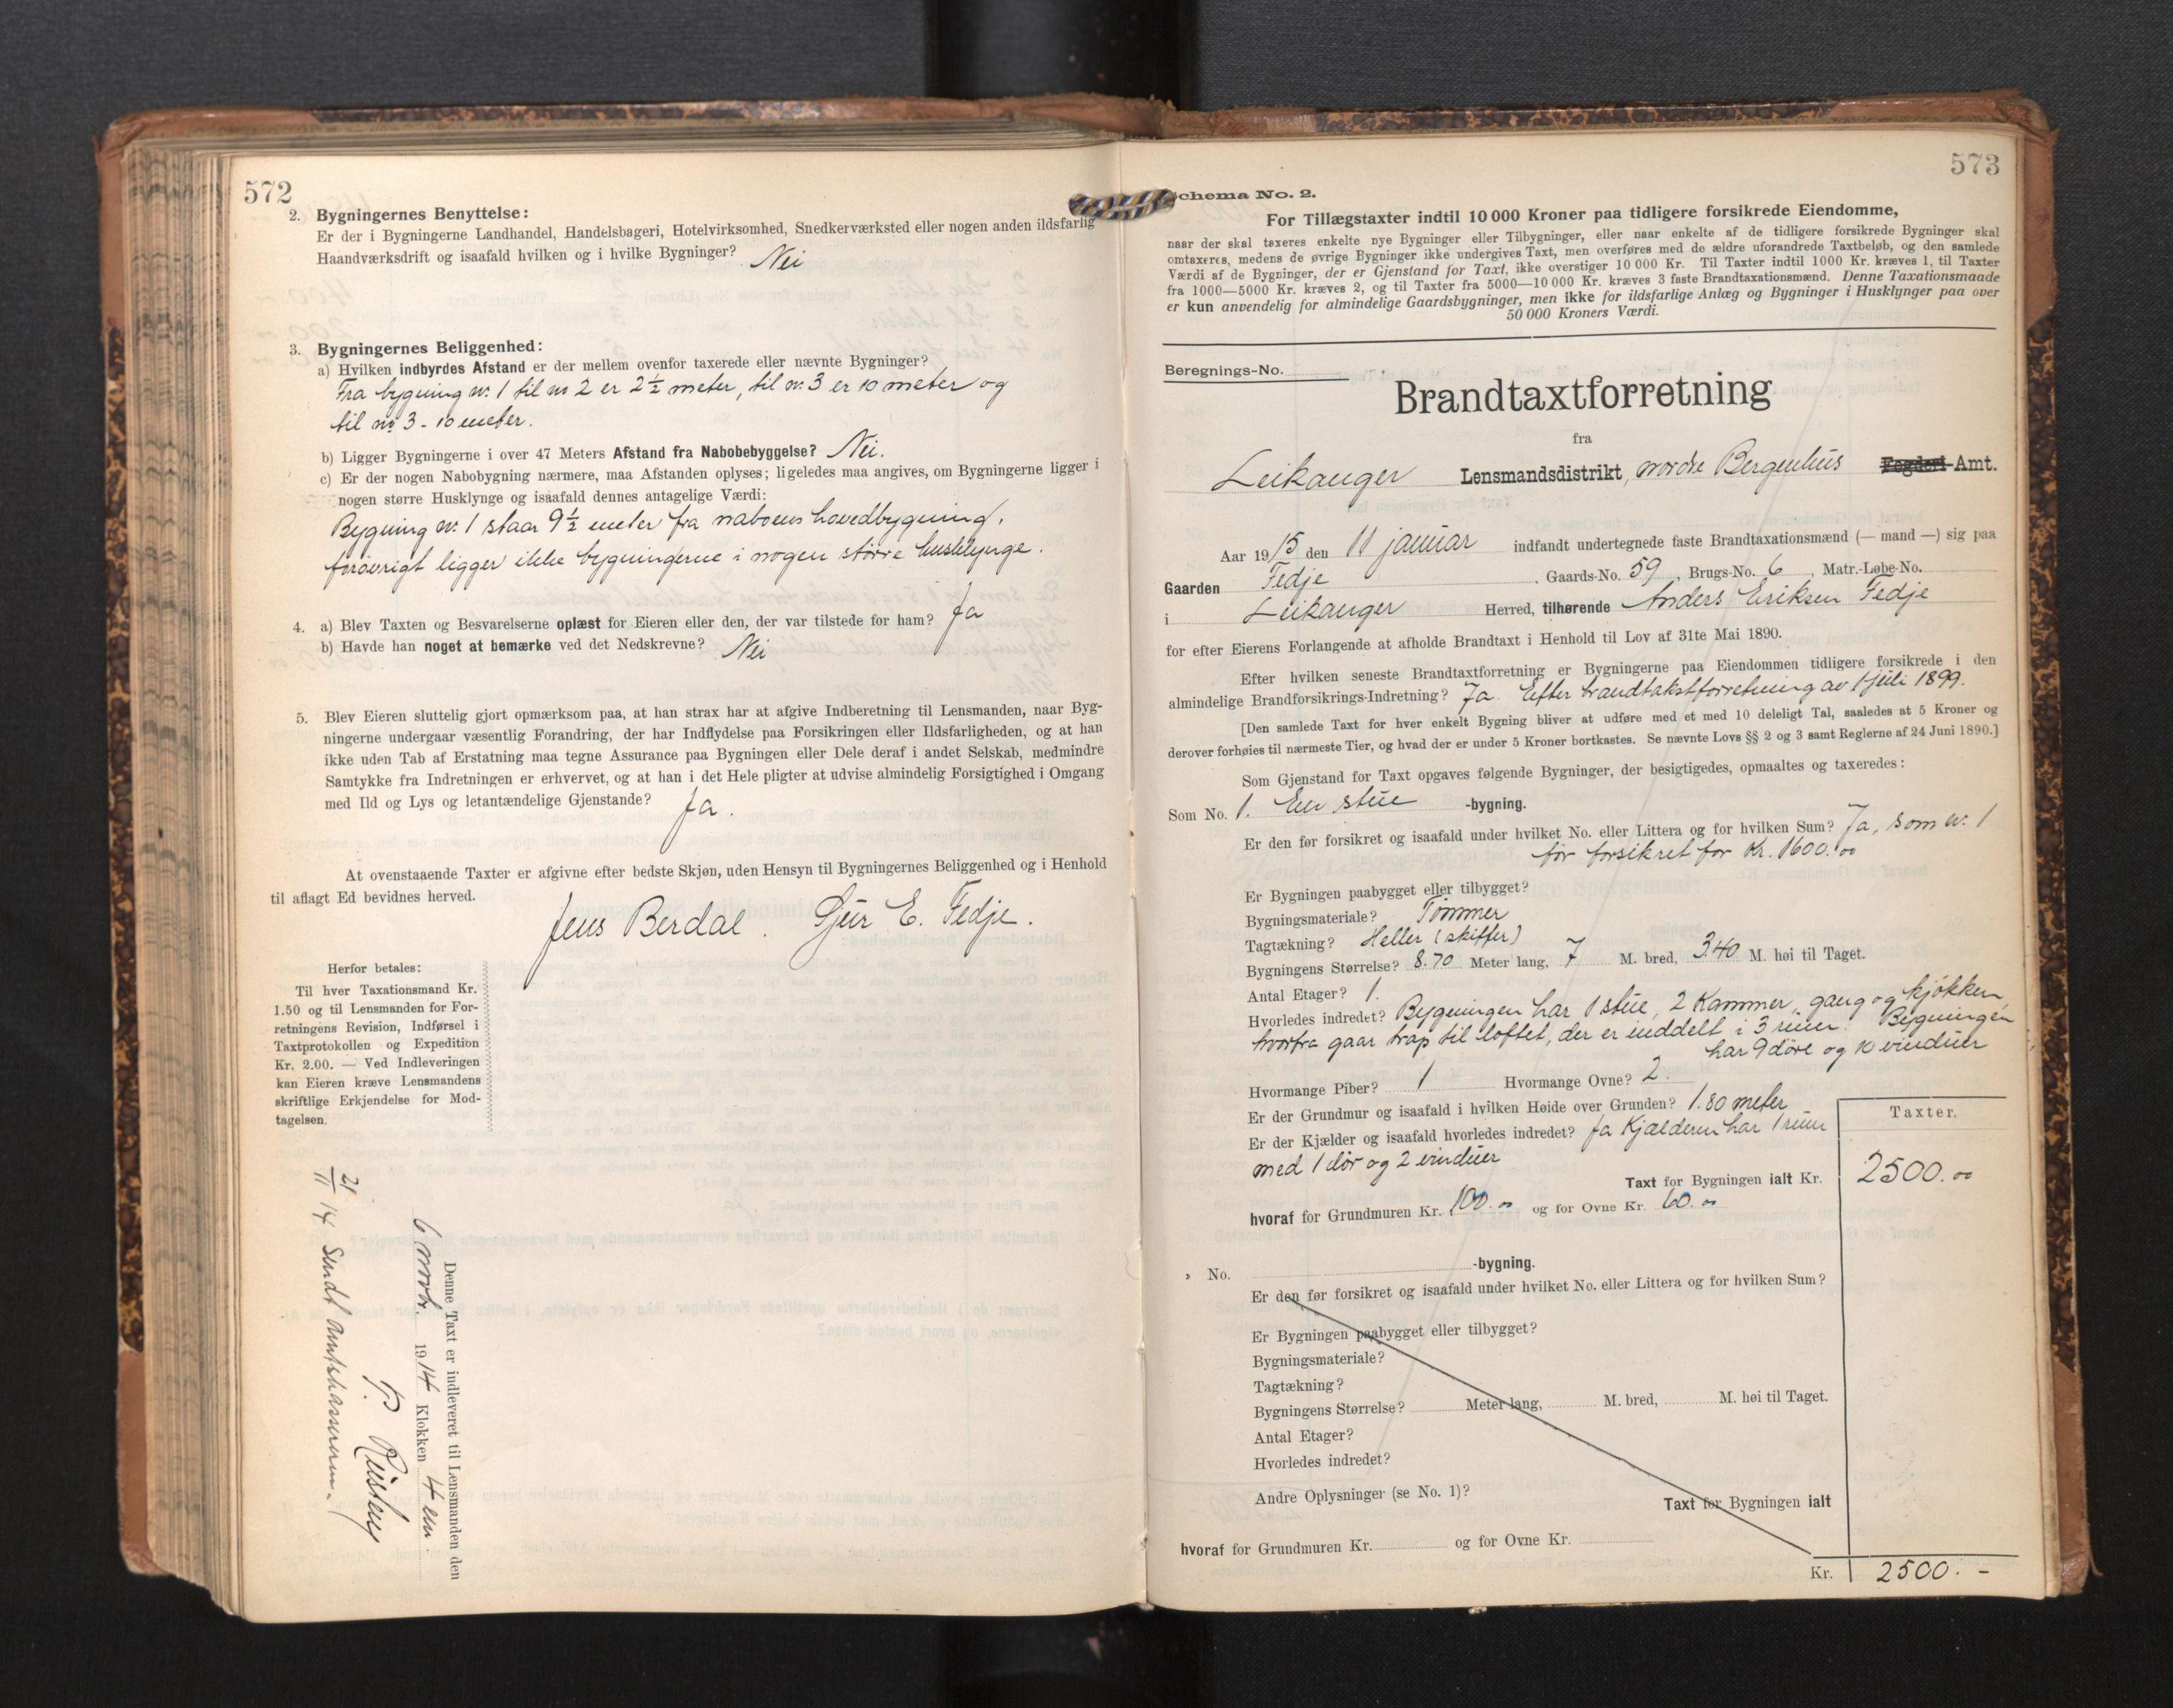 572
2. Bygningernes Benyttelse:
Er der i Bygningerne Landhandel, Handelsbageri, Hotelvirksomhed, Snedkerværksted eller nogen anden ildsfarlig
Haandværksdrift og isaafald hvilken og i hvilke Bygninger? Nei
3. Bygningernes Beliggenhed:
a) Hvilken indbyrdes Afstand er der mellem ovenfor taxerede eller nævnte Bygninger?
Fra bygning nr. 1 til nr 2 er 2 ½ meter, til nr. 3 er 10 meter og
til nr 3 - 10 meter.
b) Ligger Bygningerne i over 47 Meters Afstand fra Nabobebyggelse? Nei.
c) Er der nogen Nabobygning nærmere, maa Afstanden oplyses; ligeledes maa angives, om Bygningerne ligger i
nogen større Husklynge og isaafald dennes antagelige Værdi:
Bygning nr. 1 staar 9 ½ meter fra naboens hovedbygning,
forøvrigt ligger ikke bygningerne i nogen større husklynge.
4. a) Blev Taxten og Besvarelserne oplæst for Eieren eller den, der var tilstede for ham? Ja
b) Havde han noget at bemærke ved det Nedskrevne? Nei
5. Blev Eieren sluttelig gjort opmærksom paa, at han strax har at afgive Indberetning til Lensmanden, naar Byg-
ningerne undergaar væsentlig Forandring, der har Indflydelse paa Forsikringen eller Ildsfarligheden, og at han
ikke uden Tab af Erstatning maa tegne Assurance paa Bygningen eller Dele deraf i andet Selskab, medmindre
Samtykke fra Indretningen er erhvervet, og at han i det Hele pligter at udvise almindelig Forsigtighed i Omgang
med Ild og Lys og letantændelige Gjenstande? Ja.
At ovenstaaende Taxter er afgivne efter bedste Skjøn, uden Hensyn til Bygningernes Beliggenhed og i Henhold
til aflagt Ed bevidnes herved.
Jens Berdal. Sjur E. Fedje.
Herfor betales:
Til hver Taxationsmand Kr.
1.50 og til Lensmanden for For-
retningens Revision, Indførsel i
Taxtprotokollen og Expedition
Kr. 2.00. — Ved Indleveringen
kan Eieren kræve Lensmandens
skriftlige Erkjendelse for Mod-
tagelsen.
Denne Taxt er indleveret til Lensmanden den
6 novbr. 1914 Klokken 4 em.
21/11 14 Sendt
573
Schema No. 2.
For Tillægstaxter indtil 10 000 Kroner paa tidligere forsikrede Eiendomme,
naar der skal taxeres enkelte nye Bygninger eller Tilbygninger, eller naar enkelte af de tidligere forsikrede Bygninger skal
omtaxeres, medens de øvrige Bygninger ikke undergives Taxt, men overføres med de ældre uforandrede Taxtbeløb, og den samlede
Værdi af de Bygninger, der er Gjenstand for Taxt, ikke overstiger 10 000 Kr. Til Taxter indtil 1000 Kr. kræves 1, til Taxter
fra 1000—5000 Kr. kræves 2, og til Taxter fra 5000—10 000 Kr. kræves 3 faste Brandtaxationsmænd. Denne Taxationsmaade
er kun anvendelig for almindelige Gaardsbygninger, men ikke for ildsfarlige Anlæg og Bygninger i Husklynger paa over
50 000 Kroners Værdi.
Beregnings-No.
Brandtaxtforretning
fra
Leikanger Lensmandsdistrikt, nordre Bergenhus Fogderi-Amt.
Aar 1915 den 11 januar indfandt undertegnede faste Brandtaxationsmænd (— mand —) sig paa
Gaarden Fedje, Gaards-No. 59, Brugs-No. 6, Matr.-Løbe-No.
i Leikanger Herred, tilhørende Anders Eriksen Fedje
for efter Eierens Forlangende at afholde Brandtaxt i Henhold til Lov af 31te Mai 1890.
Efter hvilken seneste Brandtaxtforretning er Bygningerne paa Eiendommen tidligere forsikrede i den
almindelige Brandforsikrings-Indretning? Ja. Efter brandtakstforretning av 1 juli 1899.
[Den samlede Taxt for hver enkelt Bygning bliver at udføre med et med 10 deleligt Tal, saaledes at 5 Kroner og
derover forhøies til nærmeste Tier, og hvad der er under 5 Kroner bortkastes. Se nævnte Lovs §§ 2 og 3 samt Reglerne af 24 Juni 1890.]
Som Gjenstand for Taxt opgaves følgende Bygninger, der besigtigedes, opmaaltes og taxeredes:
Som No. 1. En stue -bygning.
Er den før forsikret og isaafald under hvilket No. eller Littera og for hvilken Sum? Ja, som nr. 1
før forsikret for Kr. 1600.00
Er Bygningen paabygget eller tilbygget?
Bygningsmateriale? Tømmer
Tagtækning? Heller (skiffer)
Bygningens Størrelse? 8.70 Meter lang, 7 M. bred, 3.40 M. høi til Taget.
Antal Etager? 1.
Hvorledes indredet? Bygningen har 1 stue, 2 Kammer, gang og kjøkken,
hvorfra gaar trap til loftet, der er inddelt i 3 rum. Bygningen
har 9 døre og 10 vinduer
Hvormange Piber? 1 Hvormange Ovne? 2.
Er der Grundmur og isaafald i hvilken Høide over Grunden? 1.80 meter
Er der Kjælder og isaafald hvorledes indredet? Ja Kjælderen har 1 rum
med 1 dør og 2 vinduer
Taxter.
Taxt for Bygningen ialt Kr. 2500.00
hvoraf for Grundmuren Kr. 100.00 og for Ovne Kr. 60.00
» No. -bygning.
Er den før forsikret og isaafald under hvilket No. eller Littera og for hvilken Sum?
Er Bygningen paabygget eller tilbygget?
Bygningsmateriale?
Tagtækning?
Bygningens Størrelse? Meter lang, M. bred, M. høi til Taget.
Antal Etager?
Hvorledes indredet?
Andre Oplysninger (se No. 1)?
Taxt for Bygningen ialt
hvoraf for Grundmuren Kr. og for Ovne Kr.
Kr. 2500. -